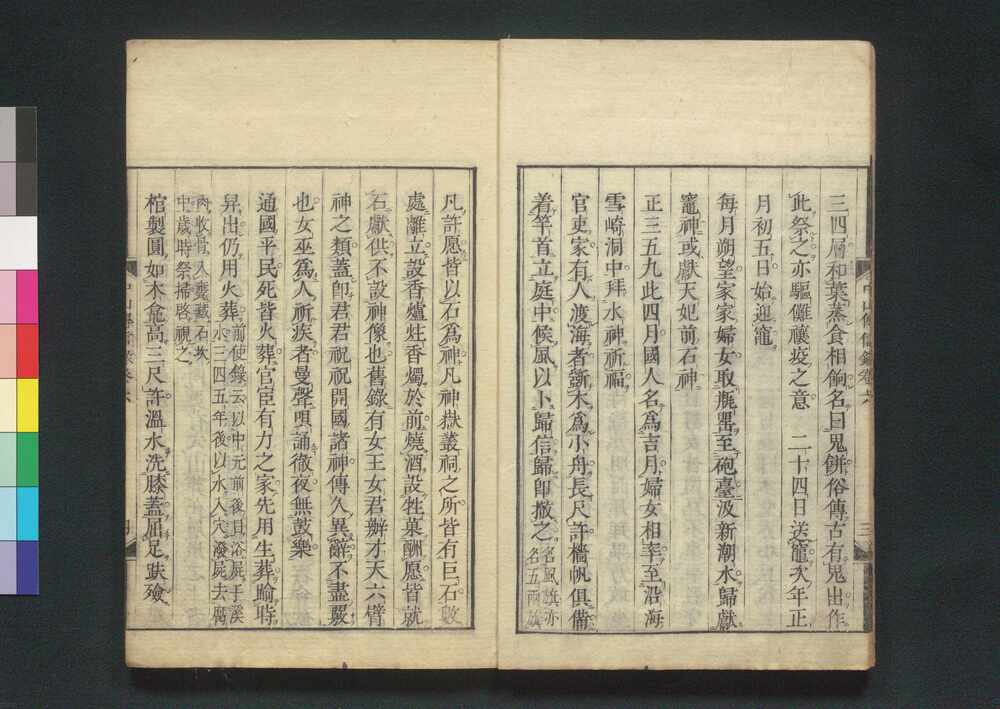 三四層和葉蒸食相餉名曰鬼餅俗傳古有鬼出作
此祭之亦驅儺禳疫之意　二十四日送竈次年正
月初五日始迎竈
每月朔望家家婦女取瓶罌至砲臺汲新潮水歸獻
竈神或獻天妃前石神
正三五九此四月國人名爲吉月婦女相率至沿海
雪崎洞中拜水神祈福
官吏家有人渡海者斲木爲小舟長尺許檣帆俱備
着竿首立庭中候風以卜歸信歸即撤之名風旗亦名五兩旗
中山傳信錄卷六
三
凡許愿皆以石爲神凡神嶽叢祠之所皆有巨石數
處離立設香爐炷香燭於前燒酒設牲菓酬愿皆就
石獻供不設神像也舊錄有女王女君辦才天六臂
神之類蓋卽君君祝祝開國諸神傳久異辭不盡覈
也女巫爲人祈疾者曼聲唄誦徹夜無鼓樂
通國平民死皆火葬官宦有力之家先用生葬踰時
舁出仍用火葬前使錄云以中元前後日浴屍于溪水三四五年後以水入穴潑屍去腐
肉收骨入甕藏石坎中歲時祭掃啓視之
棺製圓如木龕高三尺許溫水洗膝蓋屈足趺殮